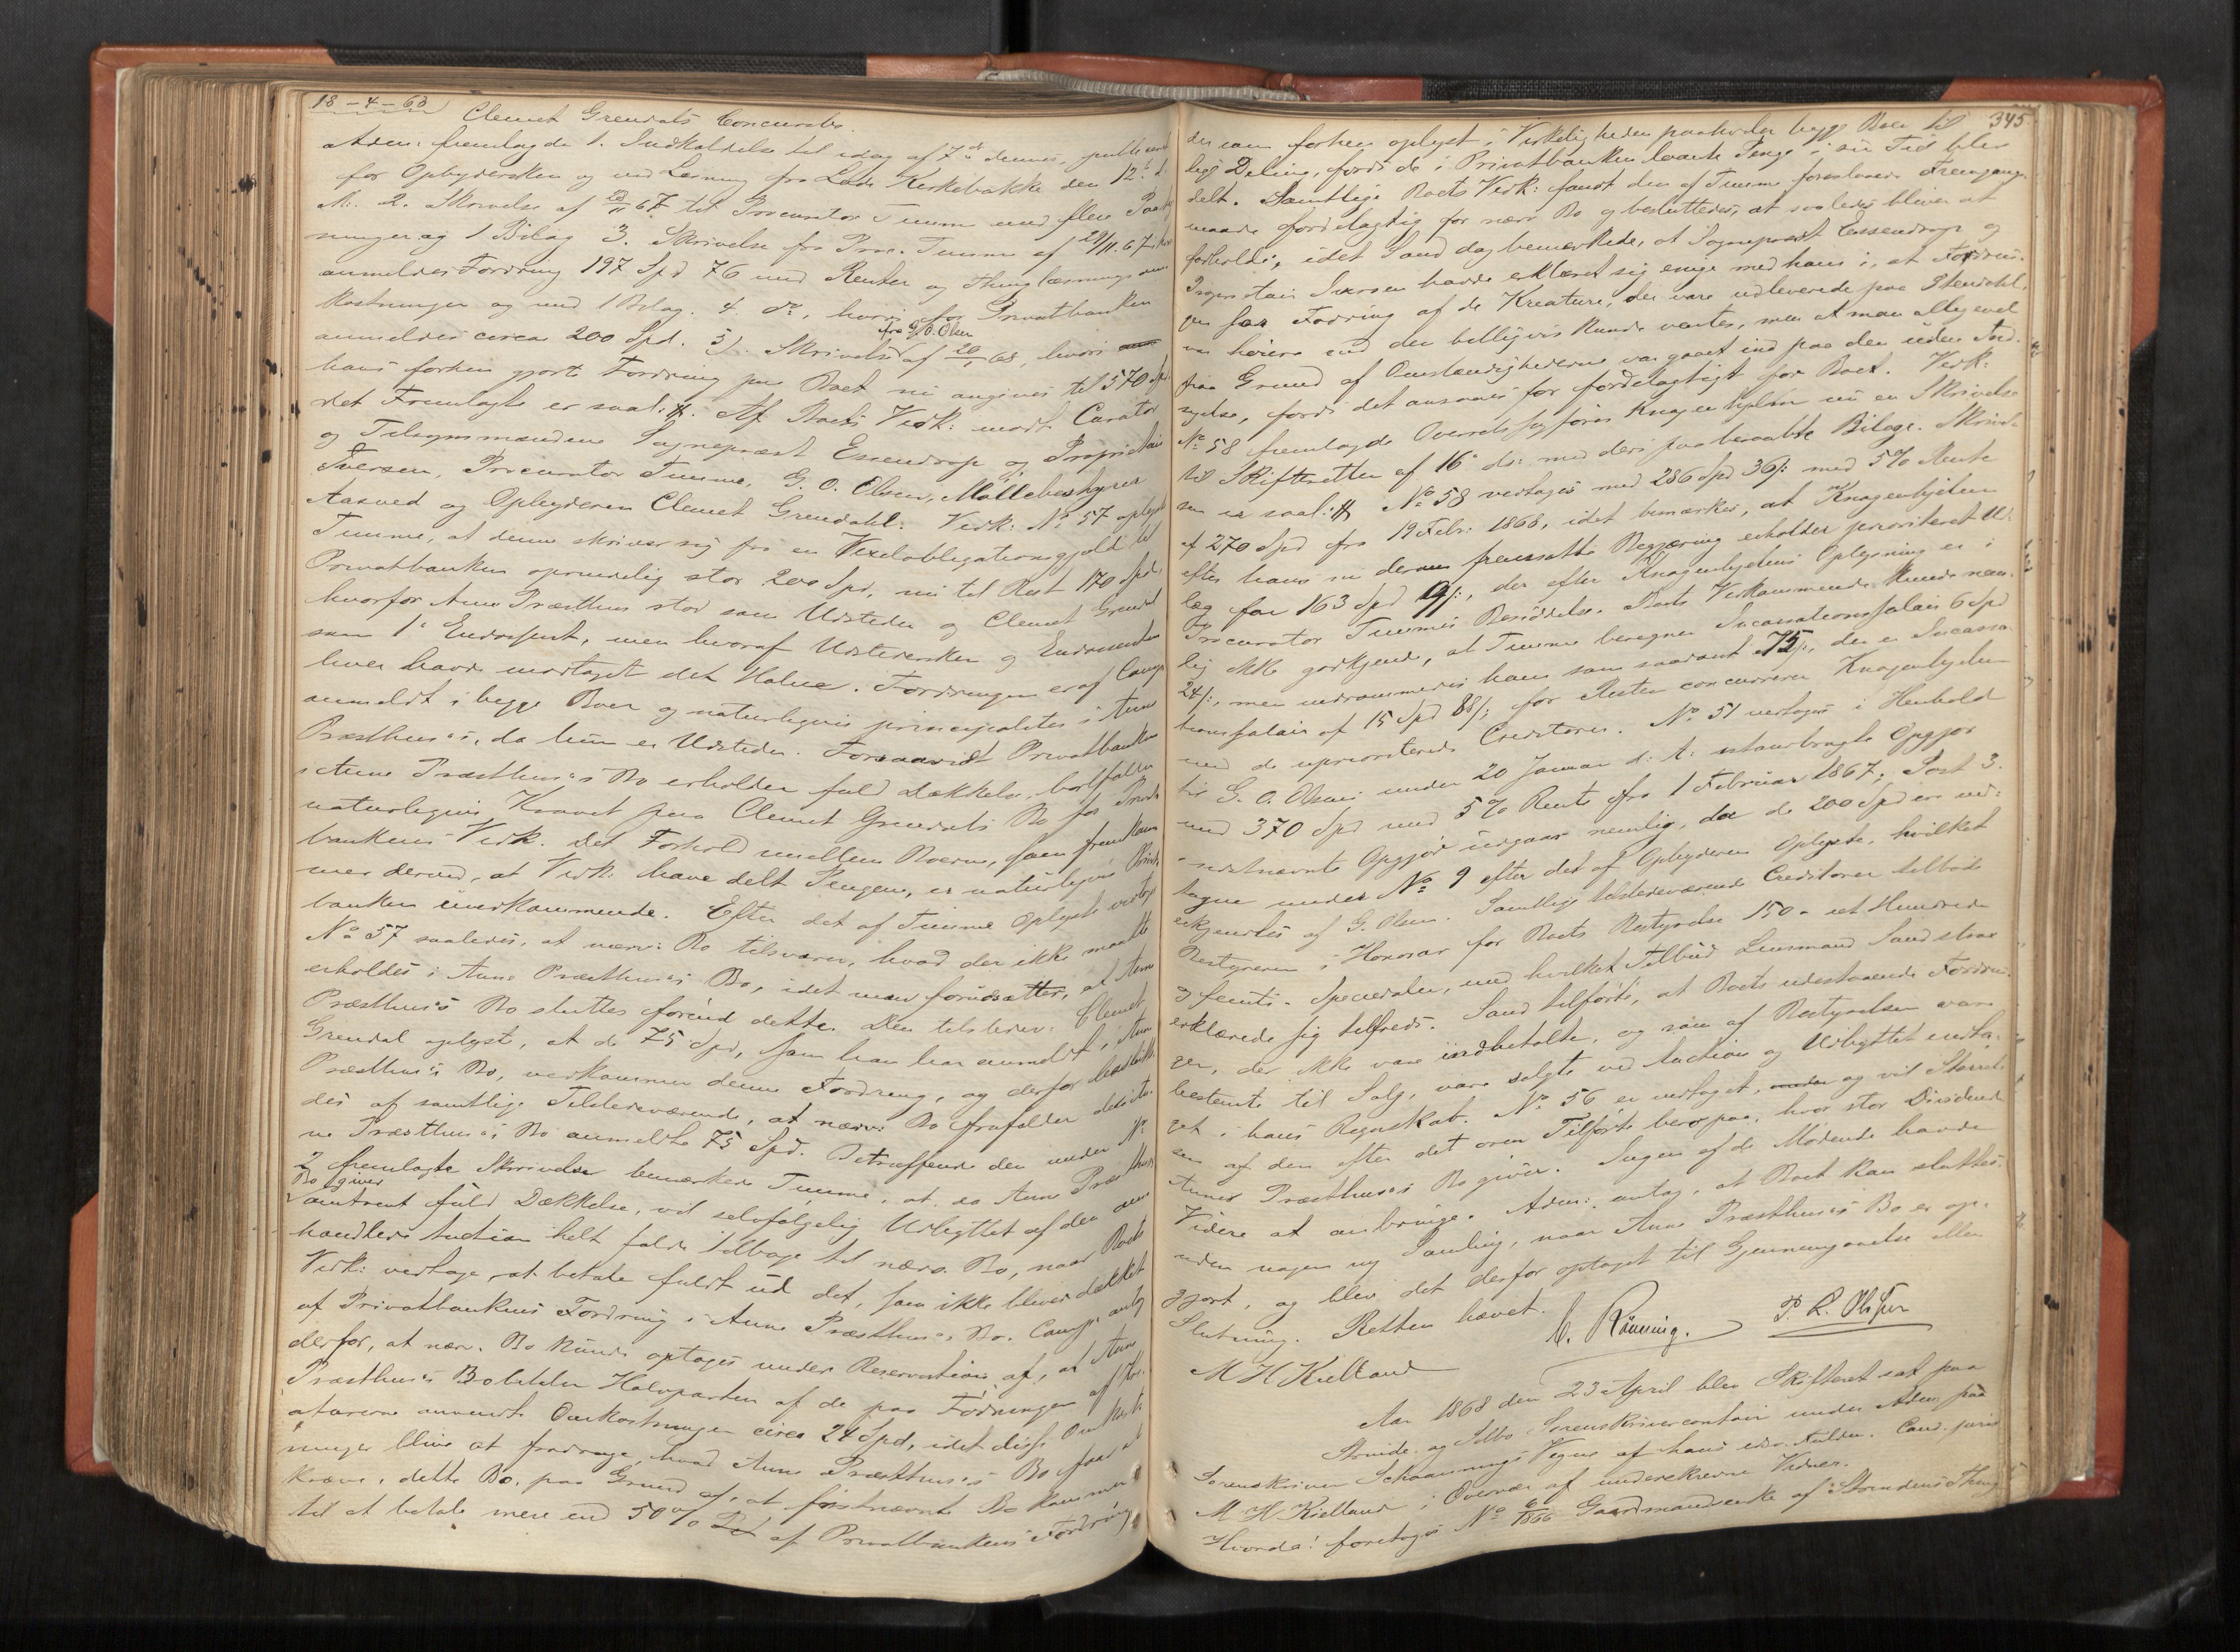 18-4-68
Clemet Grendals Concursbo.
Adm: fremlagde 1. Indkaldelse til idag af 7de dennes, publiceret
for Opbydersken og ved Læsning fra Lade Kirkebakke den 12te d.
M. 2. Skrivelse af 23/11 67 til Procurator Tumme med flere Paateg-
ninger og 1 Bilag 3. Skrivelse fra Proc. Tumme af 29/11. 67 hvor
anmeldes Fordring 197 Spd 76 med Renter og Thinglæsningsom
kostninger og med 1 Bilag. 4. do, hvori for Privatbanken
anmeldes circa 200 Spd. 5). Skrivelse fra G. O. Olsen af 20/1 68, hvori
hans forhen gjorte Fordring paa Boet nu angives til 570 Spd.
det Fremlagte er saal: #. Af Boets Vedk: mødte Curator
og Tilsynsmændene Sognepræst Essendrop og Proprietair
Iversen, Procurator Tumme, G. O. Olsen, Møllebestyrer
Aasved og Opbyderen Clemet Grendahl. Vedk: No 57 oplyste
Tumme, at denne skriver sig fra en Vexelobligationsgjæld til
Privatbanken oprindelig stor 200 Spd, nu til Rest 170 Spd,
hvorfor Anne Præsthus stod som Udsteder og Clemet Grendal
som 1e Endossent, men hvoraf Udstedersken og Endossenten
hver havde modtaget det Halve. Fordringen er af Comp.
anmeldt i begge Boer og naturligvis principaliter i Anne
Præsthus's, da hun er Udsteder. Forsaavidt Privatbanken
i Anne Præsthus's Bo erholder fuld Dækkelse, bortfalder
naturligvis Kravet paa Clemet Grendals Bo for Privat-
bankens Vedk. Det Forhold mellem Boerne, som fremkom
mer derved, at Vedk: have delt Pengene, er naturligvis Privat
banken uvedkommende. Efter det af Tumme Oplyste vedtoges
No 57 saaledes, at nærv: Bo tilsvarer, hvad der ikke maatte
erholdes i Anne Præsthus's Bo, idet man forudsætter, at Anne
Præsthus's Bo sluttes førend dette. Den tilstedev: Clemet
Grendal oplyste, at de 75 Spd, som han har anmeldt i Anne
Præsthus's Bo, vedkommer denne Fordring, og derfor besluttedes
des af samtlige Tilstedeværende, at nærv: Bo frafalder de i An-
ne Præsthus's Bo anmeldte 75 Spd. Betræffende den under No
2 fremlagte Skrivelse bemærkede Tumme, at da Anne Præsthus's
Bo giver
omtrent fuld Dækkelse, vil selvfølgelig Udbyttet af den om
handlede Auction helt falde tilbage til nærv. Bo, naar Boets
Vedk: vedtage at betale fuldt ud det, som ikke bliver dækket
af Privatbankens Fordring i Anne Præsthus's Bo. Comp. antog
derfor, at nærv. Bo kunde optages under Reservation af, at Anne
Præsthus's Bo betaler Halvparten af de paa Fodringen af Kre-
aturerne anvendte Omkostninger circa 24 Spd, idet disse Omkost-
ninger blive at fradrage, hvad Anne Præsthus's Bo faar at
kræve i dette Bo, paa Grund af, at førstnævnte Bo kommer
til at betale mere end 50 % af Privatbankens Fordring,
345
der som forhen oplyst i Virkeligheden paahviler begge Boer til
lige Deling, fordi de i Privatbanken laante Penge i sin Tid blev
delt. Samtlige Boets Vedk: fandt den af Tumme foreslaaede Fremgangs-
maade fordelagtig for nærv. Bo og besluttedes, at saaledes bliver at
forholde, idet Sand dog bemærkede, at Sognepræst Essendrop og
Proprietair Iversen havde erklæret sig enige med ham i, at Fordrin-
gen for Fodring af de Kreature, der vare udleverede paa Stendahl,
var høiere end der billigvis kunde ventes, men at man alligevel
paa Grund af Omstændighederne var gaaet ind paa den uden Ind-
sigelse, fordi det ansaaes for fordelagtigt for Boet. Vedk:
No 58 fremlagde Overretssagfører Knagenhjelm nu en Skrivelse
til Skifteretten af 16de ds: med deri paaberaabte Bilage. Skrivel-
sen er saal: # No 58 vedtages med 286 Spd 36 s: med 5 % Rente
af 270 Spd fra 19 Febr. 1868, idet bemærkes, at Knagenhjelm
efter hans nu derom fremsatte Begjæring erholder prioriteret Ud-
læg for 163 Spd 9 s:, der efter Knagenhjelms Oplysning er i
Procurator Tummes Besiddelse. Boets Vedkommende kunde nem-
lig ikke godkjende, at Tumme beregner Incassationssalair 6 Spd
24 s:, men indrømmedes ham som saadant 75 s:, der er Incassa-
tionssalair af 15 Spd 88 s; for Resten concurrerer Knagenhjelm
med de uprioriterede Creditorer. No 51 vedtages i Henhold
til G. O. Olsens under 20 Januar d. A. istandbragte Opgjør
med 370 Spd med 5 % Rente fra 1 Februar 1867; Post 3.
i sidstnævnte Opgjør udgaar nemlig, da de 200 Spd er ind-
tagne under No 9 efter det af Opbyderen Oplyste, hvilket
erkjendtes af G. Olsen. Samtlige tilstedeværende Creditorer tilbød
Bestyreren i Honorar for Boets Bestyrelse 150 - et Hundrede
og femti - Speciedaler, med hvilket Tilbud Lensmand Sand strax
erklærede sig tilfreds. Sand tilførte, at Boets udestaaende Fordrin-
ger, der ikke vare indbetalte, og som af Bestyrelsen vare
bestemte til Salg, vare solgte ved Auction og Udbyttet indta-
get i hans Regnskab. No 56 er vedtaget, og vil Størrel-
sen af den efter det oven Tilførte bero paa, hvor stor Dividende
Annes Præsthus's Bo giver. Ingen af de Mødende havde
Videre at anbringe. Adm: antog, at Boet kan sluttes
uden nogen ny Samling, naar Anne Præsthus's Bo er op-
gjort, og blev det derfor optaget til Gjennemgaaelse eller
Slutning. Retten hævet.
C. Rønning. P. L. Olsen
M H Kielland
Aar 1868 den 23 April blev Skifteret sat paa
Strinde og Selbo Sorenskrivercontoir under Adm. paa
Sorenskriver Schaannings Vegne af hans edsv. Fuldm. Cand. juris
M. H. Kielland i Overvær af underskrevne Vidner.
Hvorda: foretoges No 6/1866 Gaardmandsenke af Strindens Thing